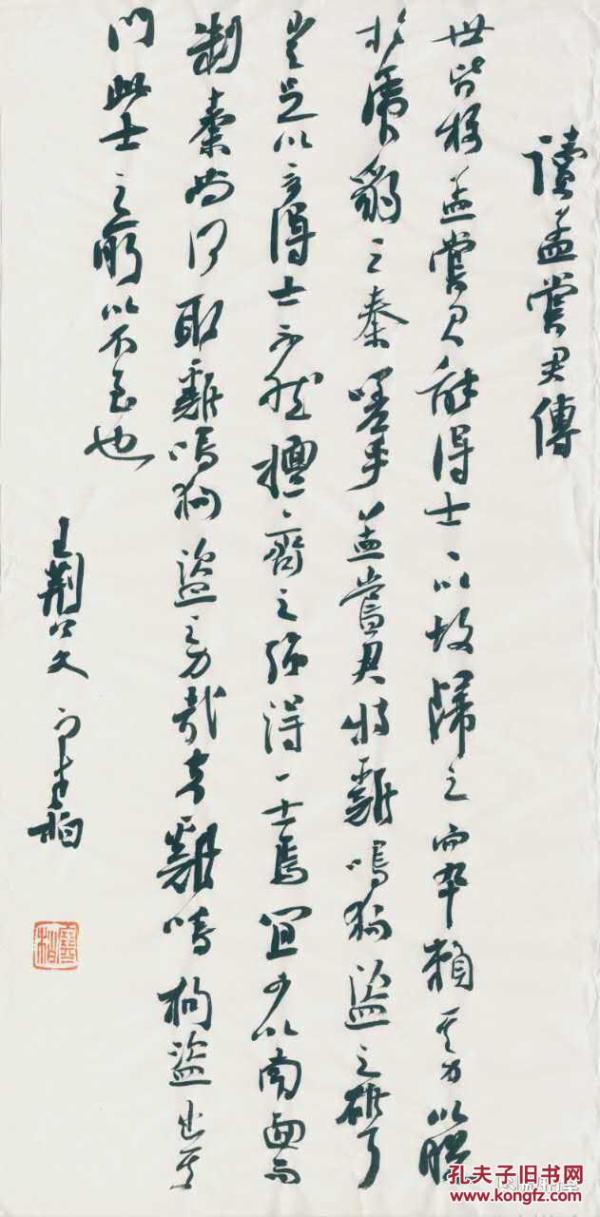 讀孟嘗君傳
世皆稱孟嘗君能得士〻以故歸之而卒賴其力以脫
於虎豹之秦嗟乎孟嘗君特雞鳴狗盜之雄耳
豈足以言得士不然擅齊之強得一士焉宜可以南面而
制秦尚何取雞鳴狗盜之力哉夫雞鳴狗盜出其
門此士之所以不至也
王荊公文
孔夫子旧书网
www.kongfz.com